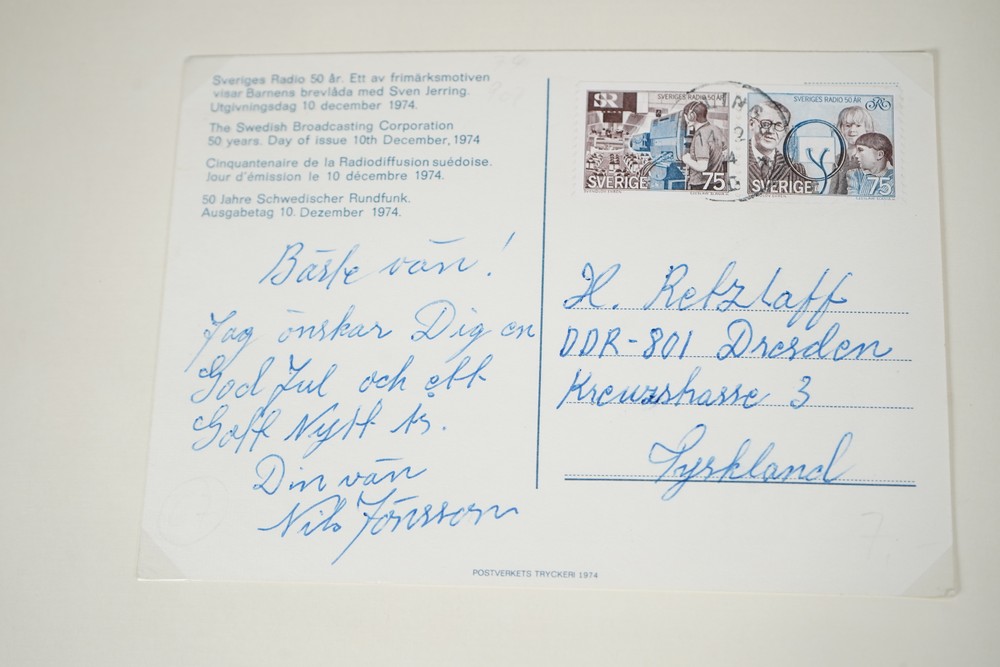 Sveriges Radio 50 år. Ett av frimärksmotiven
visar Barnens brevlåda med Sven Jerring.
Utgivningsdag 10 december 1974.
The Swedish Broadcasting Corporation
50 years. Day of issue 10th December, 1974
Cinquantenaire de la Radiodiffusion suédoise.
Jour d'émission le 10 décembre 1974.
50 Jahre Schwedischer Rundfunk.
Ausgabetag 10. Dezember 1974.
Bäste vän!
Jag önskar Dig en
God Jul och ett
Gott Nytt År.
Din vän
Nils Jönsson
SR
SVERIGES RADIO 50 ÅR
SVERIGE 75
SVERIGES RADIO 50 ÅR
SR
SVERIGE 75
H. Retzlaff
DDR-801 Dresden
Kreuzstrasse 3
Tyskland
POSTVERKETS TRYCKERI 1974